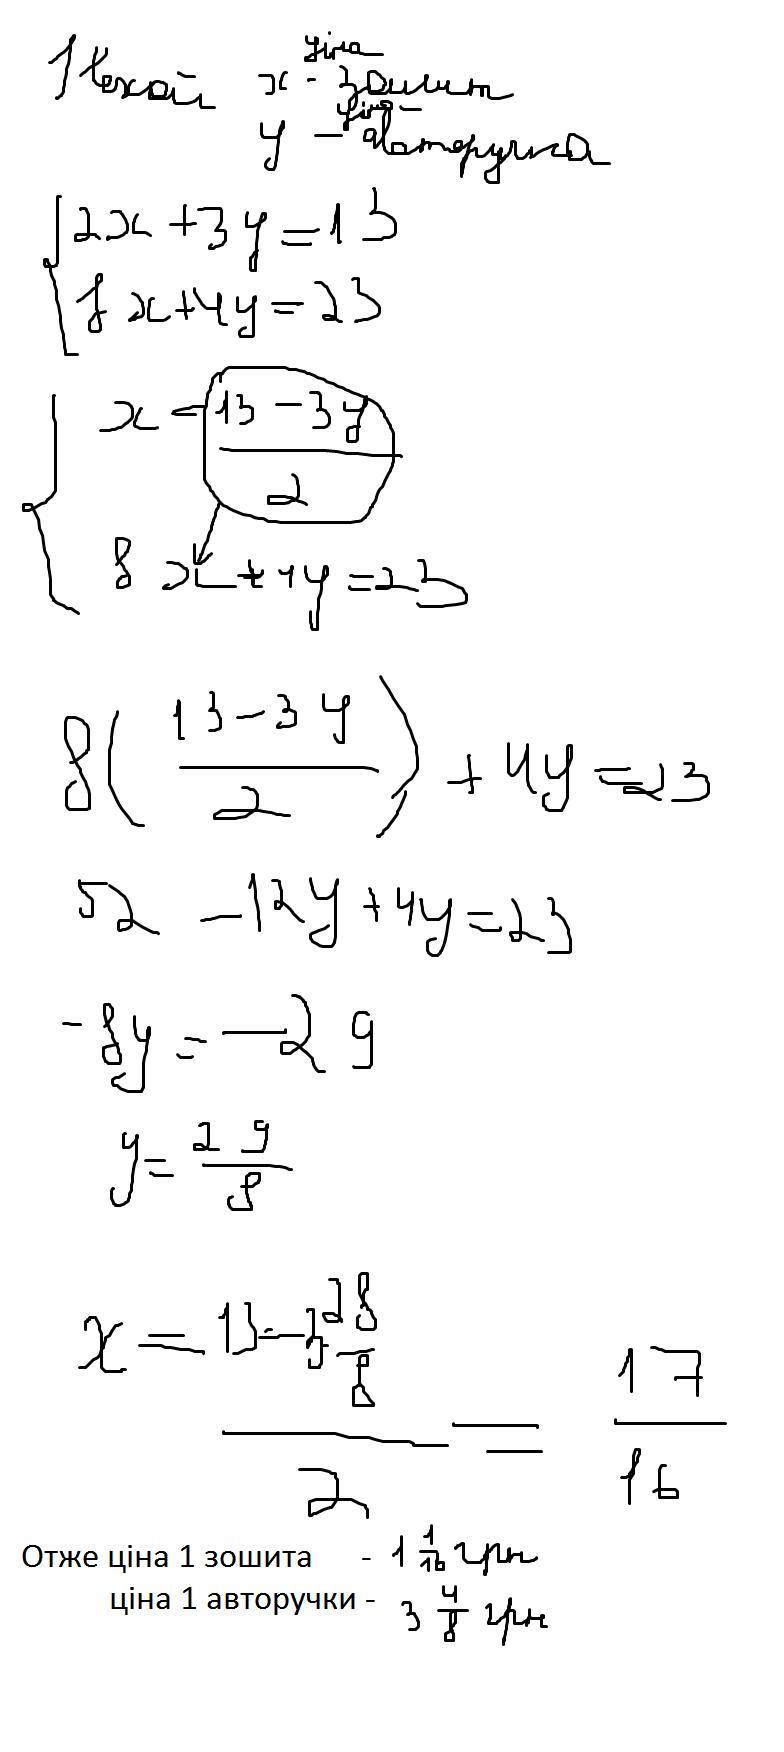 Нехай x - ціна зошит
y - ціна авторучка
2x + 3y = 13
8x + 4y = 23
x = (13 - 3y)/2
8x + 4y = 23
8((13 - 3y)/2) + 4y = 23
52 - 12y + 4y = 23
-8y = -29
y = 29/8
x = (13 - 3 28/8)/2 = 17/16
Отже ціна 1 зошита - 1 1/16 грн
ціна 1 авторучки - 3 4/8 грн